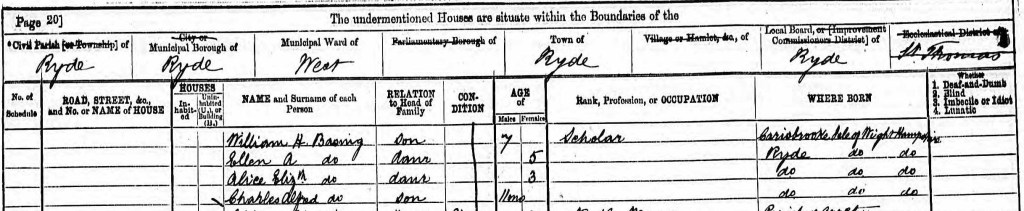 Page 20]
The undermentioned Houses are situate within the Boundaries of the
*Civil Parish [or Township] of
City or Municipal Borough of
Municipal Ward of
Parliamentary Borough of
Town of
Village or Hamlet, &c., of
Local Board, or [Improvement Commissioners District] of
Ecclesiastical District of
Ryde
Ryde
West
Ryde
Ryde
St Thomas
No. of Schedule
ROAD, STREET, &c., and No. or NAME of HOUSE
HOUSES
In-habit-ed
Unin-habited (U.), or Building (B.)
NAME and Surname of each Person
RELATION to Head of Family
CON-DITION
AGE of
Males
Females
Rank, Profession, or OCCUPATION
WHERE BORN
Whether
1. Deaf-and-Dumb
2. Blind
3. Imbecile or Idiot
4. Lunatic
William H. Basing son 7 Scholar Carisbrooke Isle of Wight Hampshire
Ellen A do daur 5 Ryde do do
Alice Elizth do daur 3 do do do
Charles Alfred do son 11mo do do do